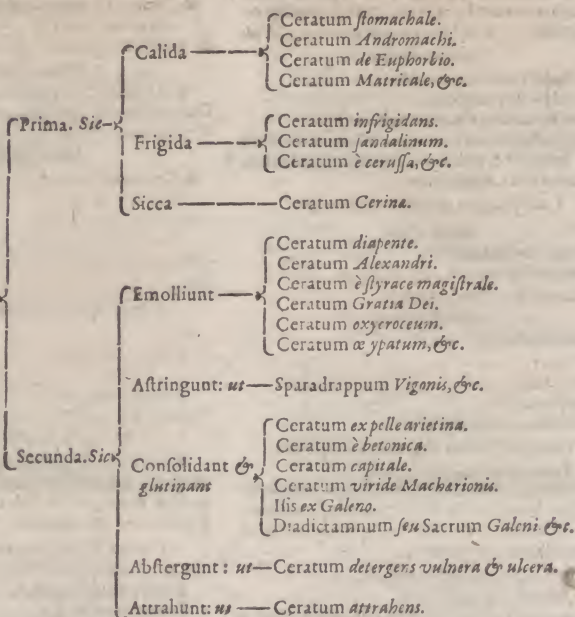 Prima. Sic
Calida
Ceratum ſtomachale.
Ceratum Andromachi.
Ceratum de Euphorbio.
Ceratum Matricale, &c.
Frigida
Ceratum infrigidans.
Ceratum ſandalinum.
Ceratum è ceruſſa, &c.
Sicca
Ceratum Cerina.
Secunda. Sic
Emolliunt
Ceratum diapente.
Ceratum Alexandri.
Ceratum è ſtyrace magiſtrale.
Ceratum Gratia Dei.
Ceratum oxycroceum.
Ceratum œ ypatum, &c.
Aſtringunt: ut
Sparadrappum Vigonis, &c.
Conſolidant &
glutinant
Ceratum ex pelle arietina.
Ceratum è betonica.
Ceratum capitale.
Ceratum viride Macharionis.
Iſis ex Galeno.
Diadictamnum ſeu Sacrum Galeni &c.
Abſtergunt: ut
Ceratum detergens vulnera & ulcera.
Attrahunt: ut
Ceratum attrahens.